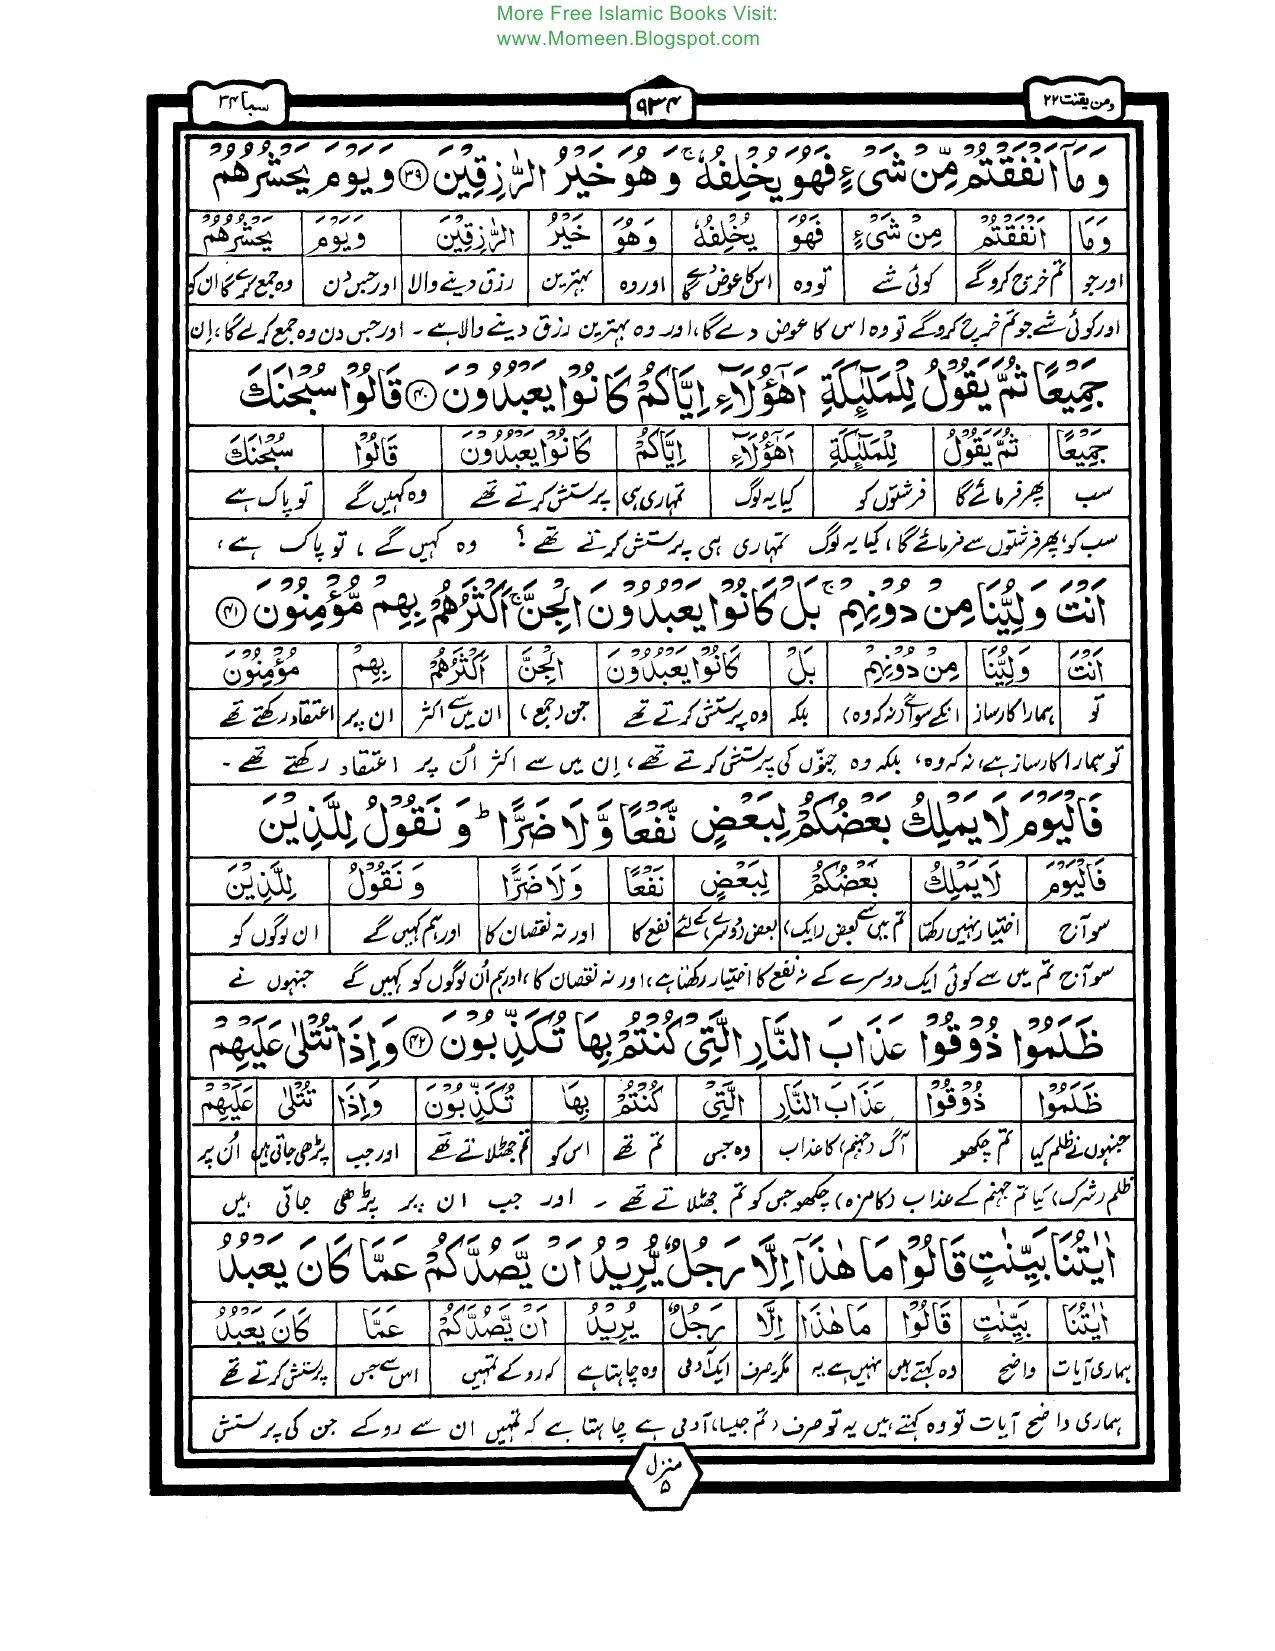 More Free Islamic Books Visit:
www.Momeen.Blogspot.com
ومن یقنت ۲۲
۹۳۴
سبا ۳۴
وَمَآ اَنْفَقْتُمْ مِّنْ شَیْءٍ فَهُوَ یُخْلِفُهٗ ۚ وَهُوَ خَیْرُ الرّٰزِقِیْنَ ﴿۳۹﴾ وَیَوْمَ یَحْشُرُهُمْ
وَمَا اَنْفَقْتُمْ مِنْ شَیْءٍ فَهُوَ یُخْلِفُهٗ وَهُوَ خَیْرُ الرّٰزِقِیْنَ وَیَوْمَ یَحْشُرُهُمْ
اور جو تم خرچ کروگے کوئی شے تو وہ اس کا عوض دے گا اور وہ بہترین رزق دینے والا اور جس دن وہ جمع کرے گا ان کو
اور کوئی شے جو تم خرچ کروگے تو وہ اس کا عوض دے گا، اور وہ بہترین رزق دینے والا ہے ۔ اور جس دن وہ جمع کرے گا، اِن
جَمِیْعًا ثُمَّ یَقُوْلُ لِلْمَلٰٓئِكَةِ اَهٰٓؤُلَآءِ اِیَّاكُمْ كَانُوْا یَعْبُدُوْنَ ﴿۴۰﴾ قَالُوْا سُبْحٰنَكَ
جَمِیْعًا ثُمَّ یَقُوْلُ لِلْمَلٰٓئِكَةِ اَهٰٓؤُلَآءِ اِیَّاكُمْ كَانُوْا یَعْبُدُوْنَ قَالُوْا سُبْحٰنَكَ
سب پھر فرمائے گا فرشتوں کو کیا یہ لوگ تمہاری ہی پرستش کرتے تھے وہ کہیں گے تو پاک ہے
سب کو، پھر فرشتوں سے فرمائے گا، کیا یہ لوگ تمہاری ہی پرستش کرتے تھے؟ وہ کہیں گے، تو پاک ہے،
اَنْتَ وَلِیُّنَا مِنْ دُوْنِهِمْ ۚ بَلْ كَانُوْا یَعْبُدُوْنَ الْجِنَّ ۚ اَكْثَرُهُمْ بِهِمْ مُّؤْمِنُوْنَ ﴿۴۱﴾
اَنْتَ وَلِیُّنَا مِنْ دُوْنِهِمْ بَلْ كَانُوْا یَعْبُدُوْنَ الْجِنَّ اَكْثَرُهُمْ بِهِمْ مُؤْمِنُوْنَ
تو ہمارا کارساز انکے سوائے (نہ کہ وہ) بلکہ وہ پرستش کرتے تھے جن (جمع) ان میں سے اکثر ان پر اعتقاد رکھتے تھے
تو ہمارا کارساز ہے، نہ کہ وہ، بلکہ وہ جِنّوں کی پرستش کرتے تھے، اِن میں سے اکثر اُن پر اعتقاد رکھتے تھے ۔
فَالْیَوْمَ لَا یَمْلِكُ بَعْضُكُمْ لِبَعْضٍ نَّفْعًا وَّلَا ضَرًّا ؕ وَنَقُوْلُ لِلَّذِیْنَ
فَالْیَوْمَ لَا یَمْلِكُ بَعْضُكُمْ لِبَعْضٍ نَفْعًا وَلَا ضَرًّا وَنَقُوْلُ لِلَّذِیْنَ
سو آج اختیار نہیں رکھتا تم میں سے بعض (ایک) بعض (دوسرے) کے لئے نفع کا اور نہ نقصان کا اور ہم کہیں گے ان لوگوں کو
سو آج تم میں سے کوئی ایک دوسرے کے نہ نفع کا اختیار رکھتا ہے، اور نہ نقصان کا، اور ہم اُن لوگوں کو کہیں گے جنہوں نے
ظَلَمُوْا ذُوْقُوْا عَذَابَ النَّارِ الَّتِیْ كُنْتُمْ بِهَا تُكَذِّبُوْنَ ﴿۴۲﴾ وَاِذَا تُتْلٰی عَلَیْهِمْ
ظَلَمُوْا ذُوْقُوْا عَذَابَ النَّارِ الَّتِیْ كُنْتُمْ بِهَا تُكَذِّبُوْنَ وَاِذَا تُتْلٰی عَلَیْهِمْ
جنہوں نے ظلم کیا تم چکھو آگ (جہنم) کا عذاب وہ جس تم تھے اس کو تم جھٹلاتے تھے اور جب پڑھی جاتی ہیں اُن پر
ظلم (شرک) کیا تم جہنم کے عذاب (کا مزہ) چکھو جس کو تم جھٹلاتے تھے ۔ اور جب ان پر پڑھی جاتی ہیں
اٰیٰتُنَا بَیِّنٰتٍ قَالُوْا مَا هٰذَآ اِلَّا رَجُلٌ یُّرِیْدُ اَنْ یَّصُدَّكُمْ عَمَّا كَانَ یَعْبُدُ
اٰیٰتُنَا بَیِّنٰتٍ قَالُوْا مَا هٰذَا اِلَّا رَجُلٌ یُرِیْدُ اَنْ یَّصُدَّكُمْ عَمَّا كَانَ یَعْبُدُ
ہماری آیات واضح وہ کہتے ہیں نہیں ہے یہ مگر صرف ایک آدمی وہ چاہتا ہے کہ روکے تمہیں اس سے جس پرستش کرتے تھے
ہماری واضح آیات تو وہ کہتے ہیں یہ تو صرف (تم جیسا) آدمی ہے چاہتا ہے کہ تمہیں ان سے روکے جن کی پرستش
منزل ۵